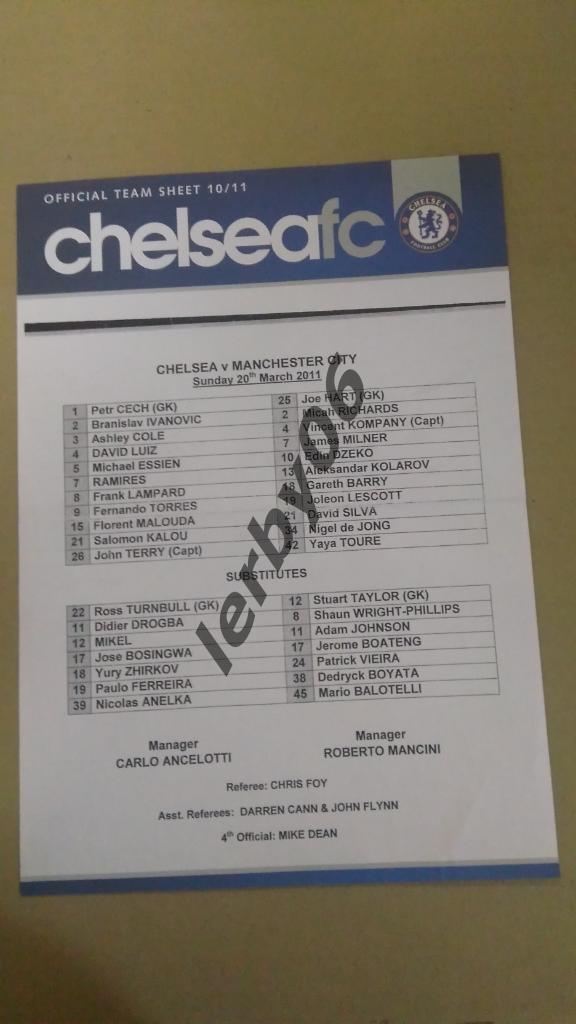 OFFICIAL TEAM SHEET 10/11
chelseafc
CHELSEA
FOOTBALL CLUB
CHELSEA v MANCHESTER CITY
Sunday 20th March 2011
1 Petr CECH (GK) 25 Joe HART (GK)
2 Branislav IVANOVIC 2 Micah RICHARDS
3 Ashley COLE 4 Vincent KOMPANY (Capt)
4 DAVID LUIZ 7 James MILNER
5 Michael ESSIEN 10 Edin DZEKO
7 RAMIRES 13 Aleksandar KOLAROV
8 Frank LAMPARD 18 Gareth BARRY
9 Fernando TORRES 19 Joleon LESCOTT
15 Florent MALOUDA 21 David SILVA
21 Salomon KALOU 34 Nigel de JONG
26 John TERRY (Capt) 42 Yaya TOURE
SUBSTITUTES
22 Ross TURNBULL (GK) 12 Stuart TAYLOR (GK)
11 Didier DROGBA 8 Shaun WRIGHT-PHILLIPS
12 MIKEL 11 Adam JOHNSON
17 Jose BOSINGWA 17 Jerome BOATENG
18 Yury ZHIRKOV 24 Patrick VIEIRA
19 Paulo FERREIRA 38 Dedryck BOYATA
39 Nicolas ANELKA 45 Mario BALOTELLI
Manager Manager
CARLO ANCELOTTI ROBERTO MANCINI
Referee: CHRIS FOY
Asst. Referees: DARREN CANN & JOHN FLYNN
4th Official: MIKE DEAN
lerby06